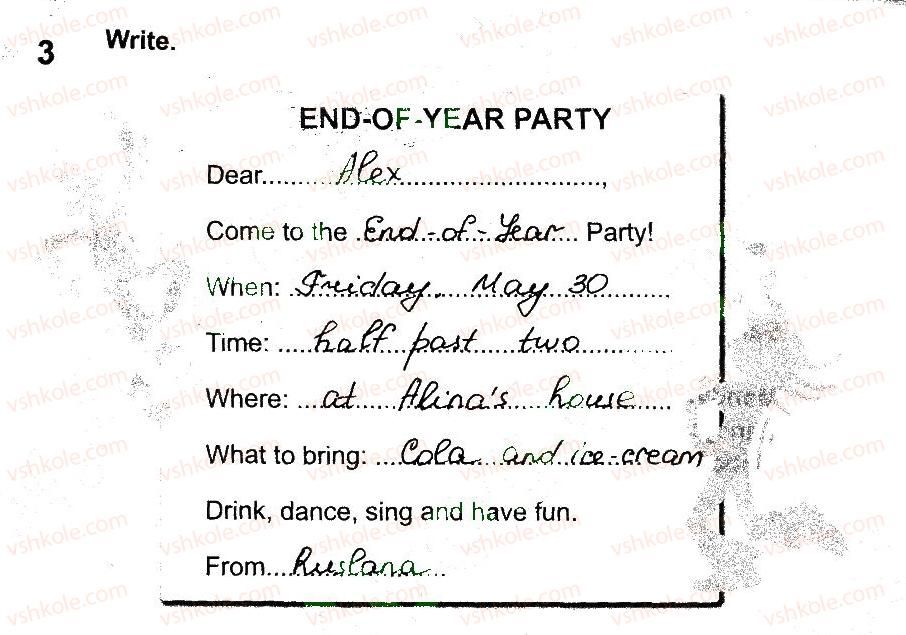 3 Write.
END-OF-YEAR PARTY
Dear Alex,
Come to the End-of-Year Party!
When: Friday, May 30
Time: half past two
Where: at Alina's house
What to bring: Cola and ice-cream
Drink, dance, sing and have fun.
From Ruslana
vshkole.com